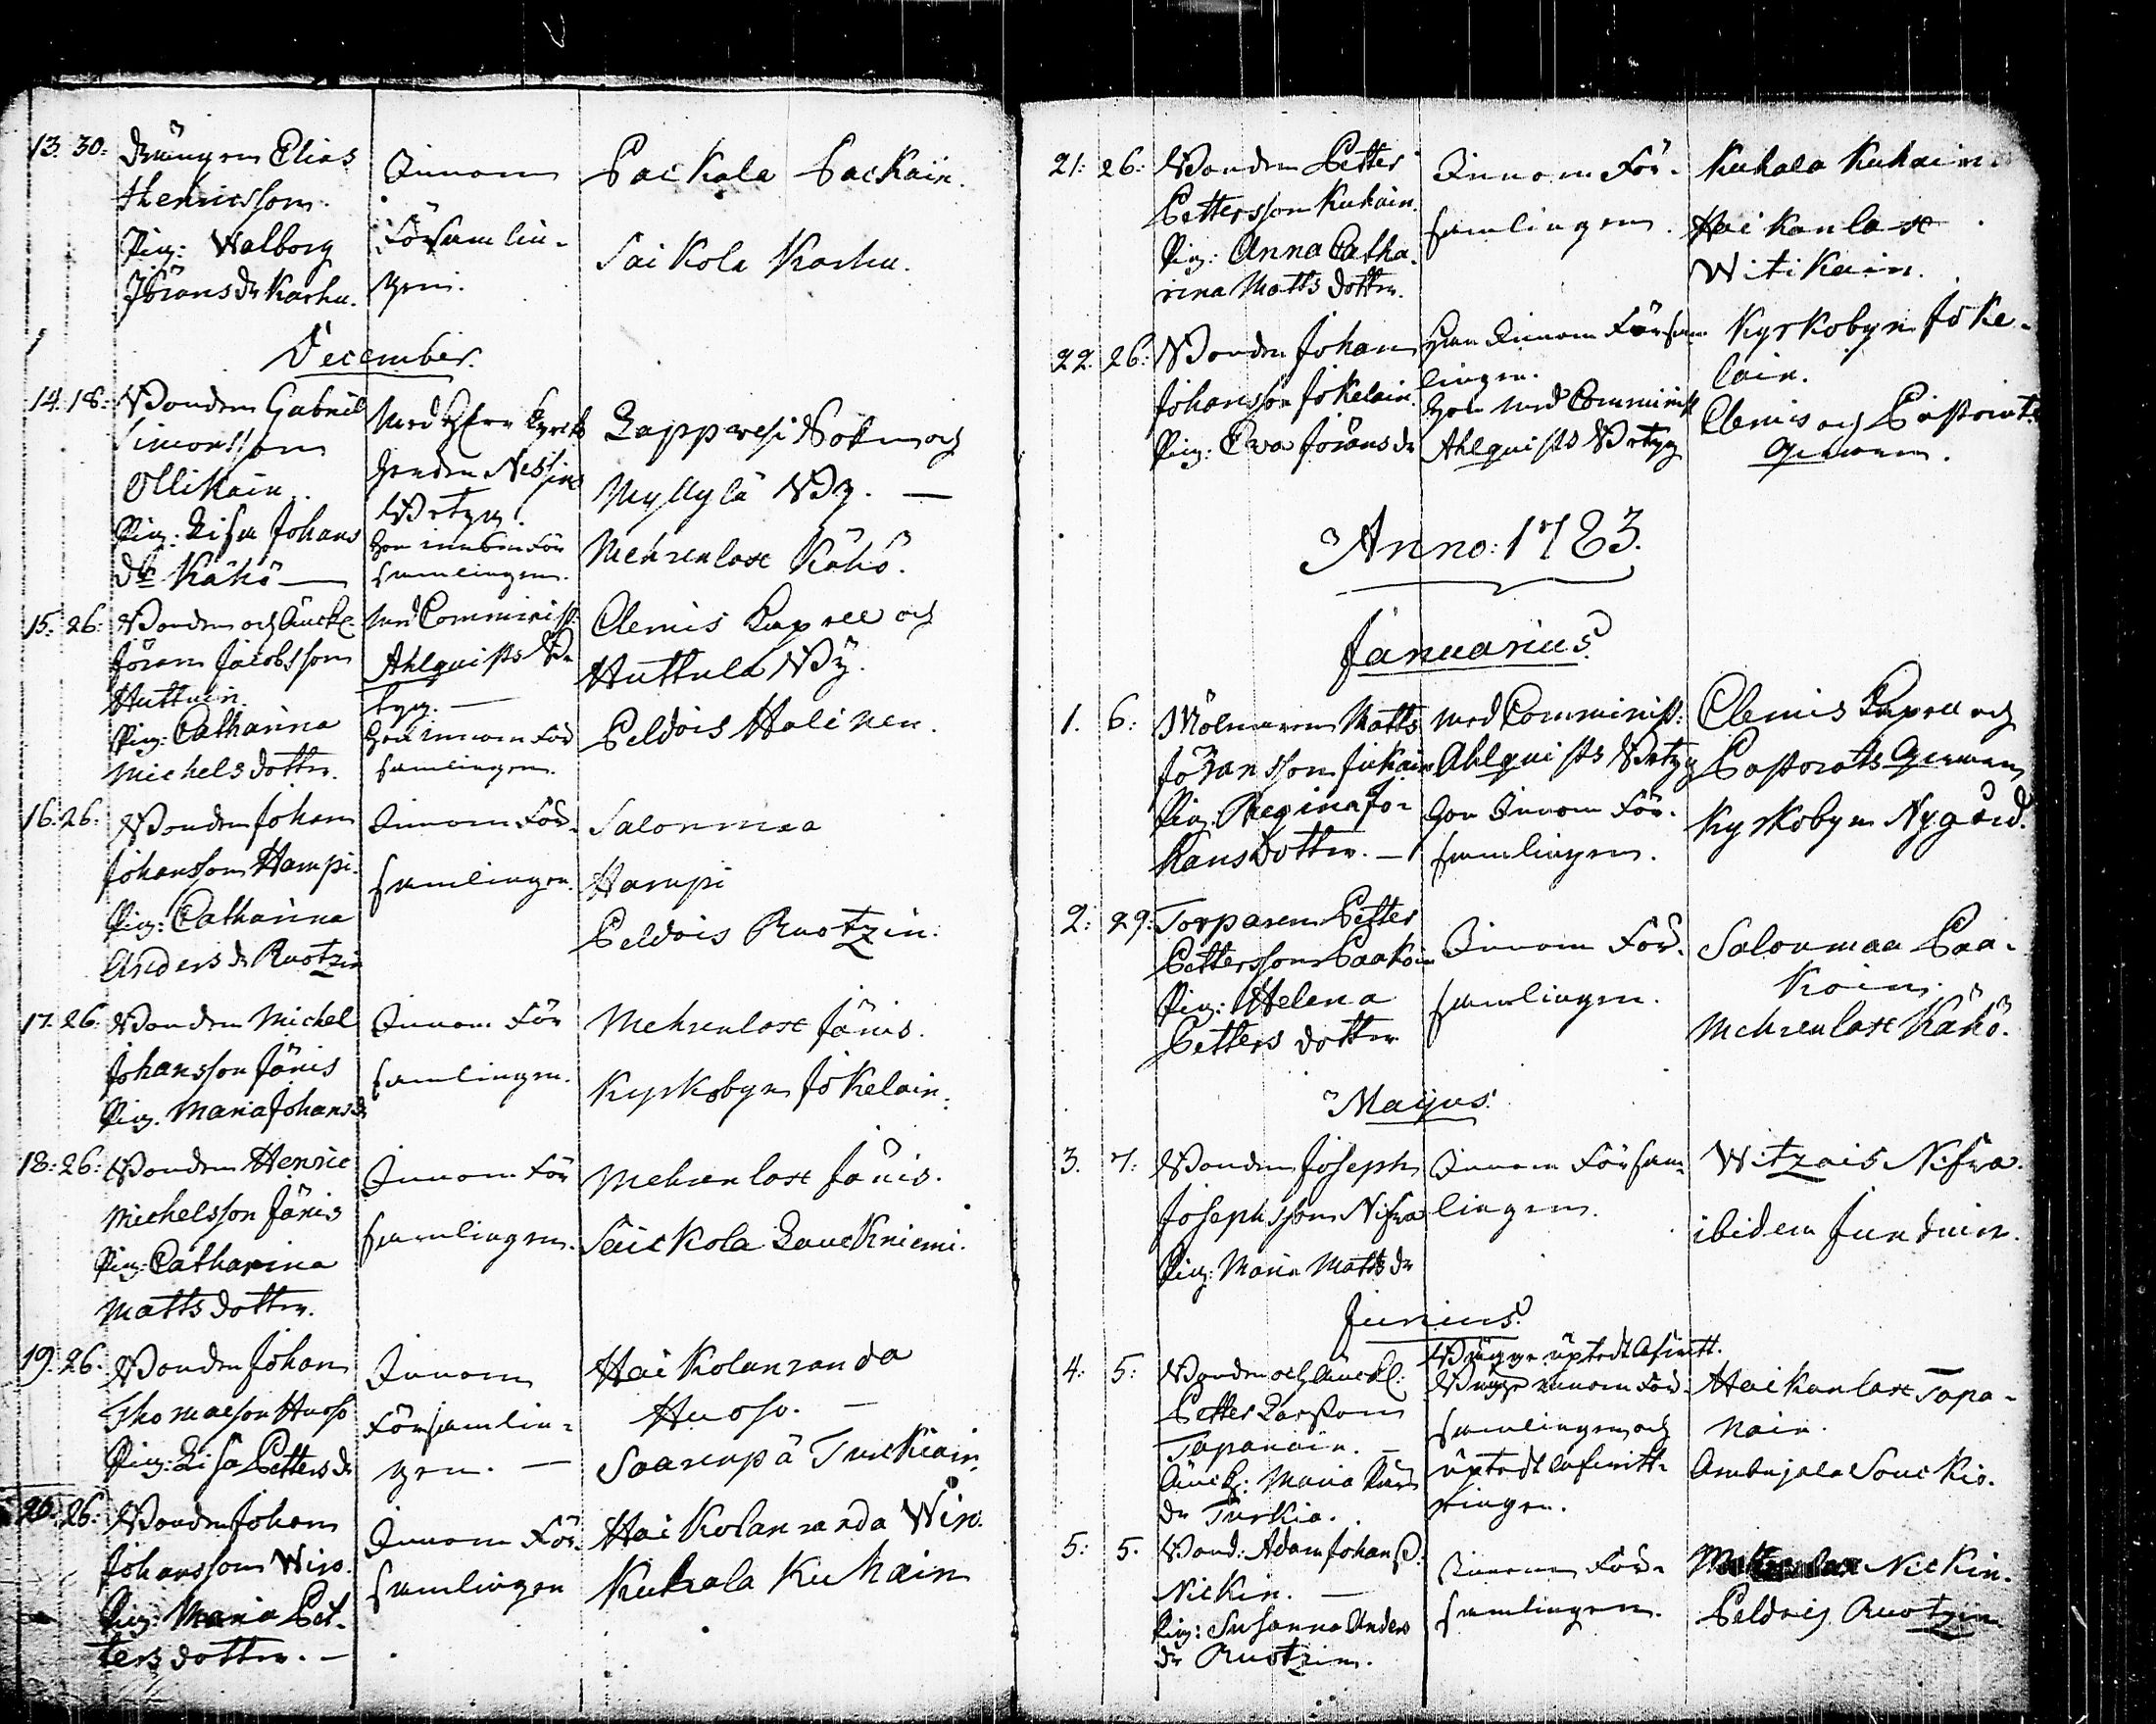 13. 30. Drängen Elias
Henricsson.
Pig: Walborg
Jöransdr Karhu.
Innom
Församlin-
gen.
Paikala Packain.
Saikola Karhu.
December.
14. 18. Bonden Gabriel
Simonsson
Ollikain.
Pig: Lisa Johans
dr Kähö —
Med Herr Kyrko
herden
Betyg.
Hon innom För
samlingen.
Lappvesi Sokn och
Myllylä By. —
Mehrenlax Kähö.
15. 26. Bonden och Änckl:
Jöran Jacobsson
Huttuin.
Pig: Catharina
Michelsdotter.
Med Comminist:
Ahlquists Be
tyg. —
Hon innom För
samlingen.
Clemis Capell och
Huttula By.
Peldois Halinen.
16. 26. Bonden Johan
Johansson Hampi.
Pig: Catharina
Anders dr Ruotzin
Innom För-
samlingen.
Salonmaa
Hampi
Peldois Ruotzin.
17. 26. Bonden Michel
Johansson Jänis
Pig. Maria Johansdr
Innom För
samlingen.
Mehrenlax Jänis.
Kyrkobyn Jokelain.
18. 26. Bonden Henric
Michelsson Jänis
Pig: Catharina
Mattsdotter.
Innom För
samlingen.
Mehrenlax Jänis.
Saickola Lauckniemi.
19. 26. Bonden Johan
Thomasson Huoso
Pig: Lisa Petters dr
Innom
Församlin-
gen. —
Haikolanranda
Huoso. —
Saarenpä Turckiain.
20. 26. Bonden Johan
Johansson Wiro.
Pig: Maria Pet-
ters dotter. —
Innom För-
samlingen
Haikolanranda Wiro.
Kukala Kukain
21. 26. Bonden Petter
Pettersson Kukain.
Pig: Anna Catha-
rina Matts dotter.
Innom För-
samlingen.
Kukala Kukain.
Haikanlax
Witikain.
22. 26. Bonden Johan
Johansson Jokelain.
Pig: Eva Jörans dr
Han Innom Försam
lingen.
Hon med Comminist
Ahlquists Betyg
Kyrkobyn Joke-
lain.
Clemis och Pastorats
Qvarn.
Anno: 1783.
Januarius.
1. 6. Mölnaren Matts
Johansson Jukain
Pig. Regina Jo-
hansdotter. —
Med Comminist:
Ahlquists Betyg
Hon Innom För-
samlingen.
Clemis Capell och
Pastorats Qvarn
Kyrkobyn Nygård.
2. 29. Torparen Petter
Pettersson Paakoin
Pig: Helena
Petters dotter
Innom För-
samlingen.
Salonmaa Paa-
koin.
Mehrenlax Kähö.
Maijus.
3. 7. Bonden Joseph
Josephsson Nifwa
Pig: Maria Matts dr
Innom Försam-
lingen.
Witzais Nifwa.
ibidem Junduin.
Junius.
4. 5. Bonden och Änckl:
Petter Larsson
Tapanain. —
Änck: Maria Lars
dr Turkia.
Bägge innom För-
samlingen och
Haikanlax Tapa-
nain.
Ambajala Souckio.
5. 5. Bond: Adam Johanss:
Nickin. —
Pig: Susanna Anders
dr Ruotzin.
Innom För-
samlingen.
Nickin.
Peldois Ruotzin